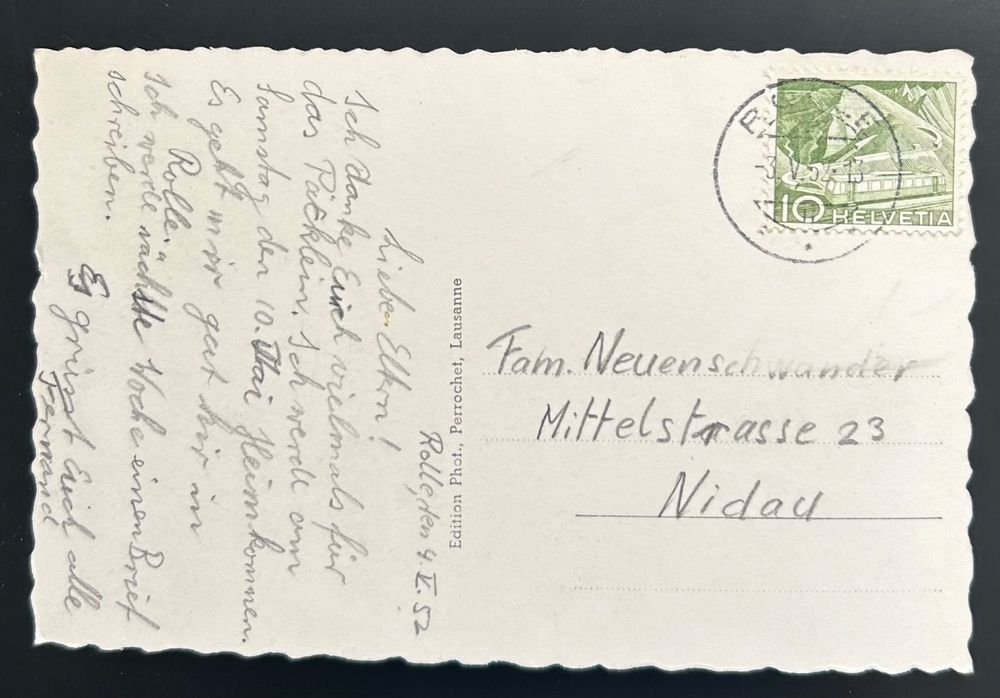 Rolle, den 4. V. 52
Liebe Eltern!
Ich danke Euch vielmals für
das Päcklein. Ich werde am
Samstag den 10. Mai Heimkommen.
Es geht mir gut hir in
Rolle.
Ich werde nächste Woche einen Brief
schreiben.
Es grüsst Euch alle
Fernand
Edition Phot., Perrochet, Lausanne
ROLLE
V. 52 - 13
10 HELVETIA
Fam. Neuenschwander
Mittelstrasse 23
Nidau